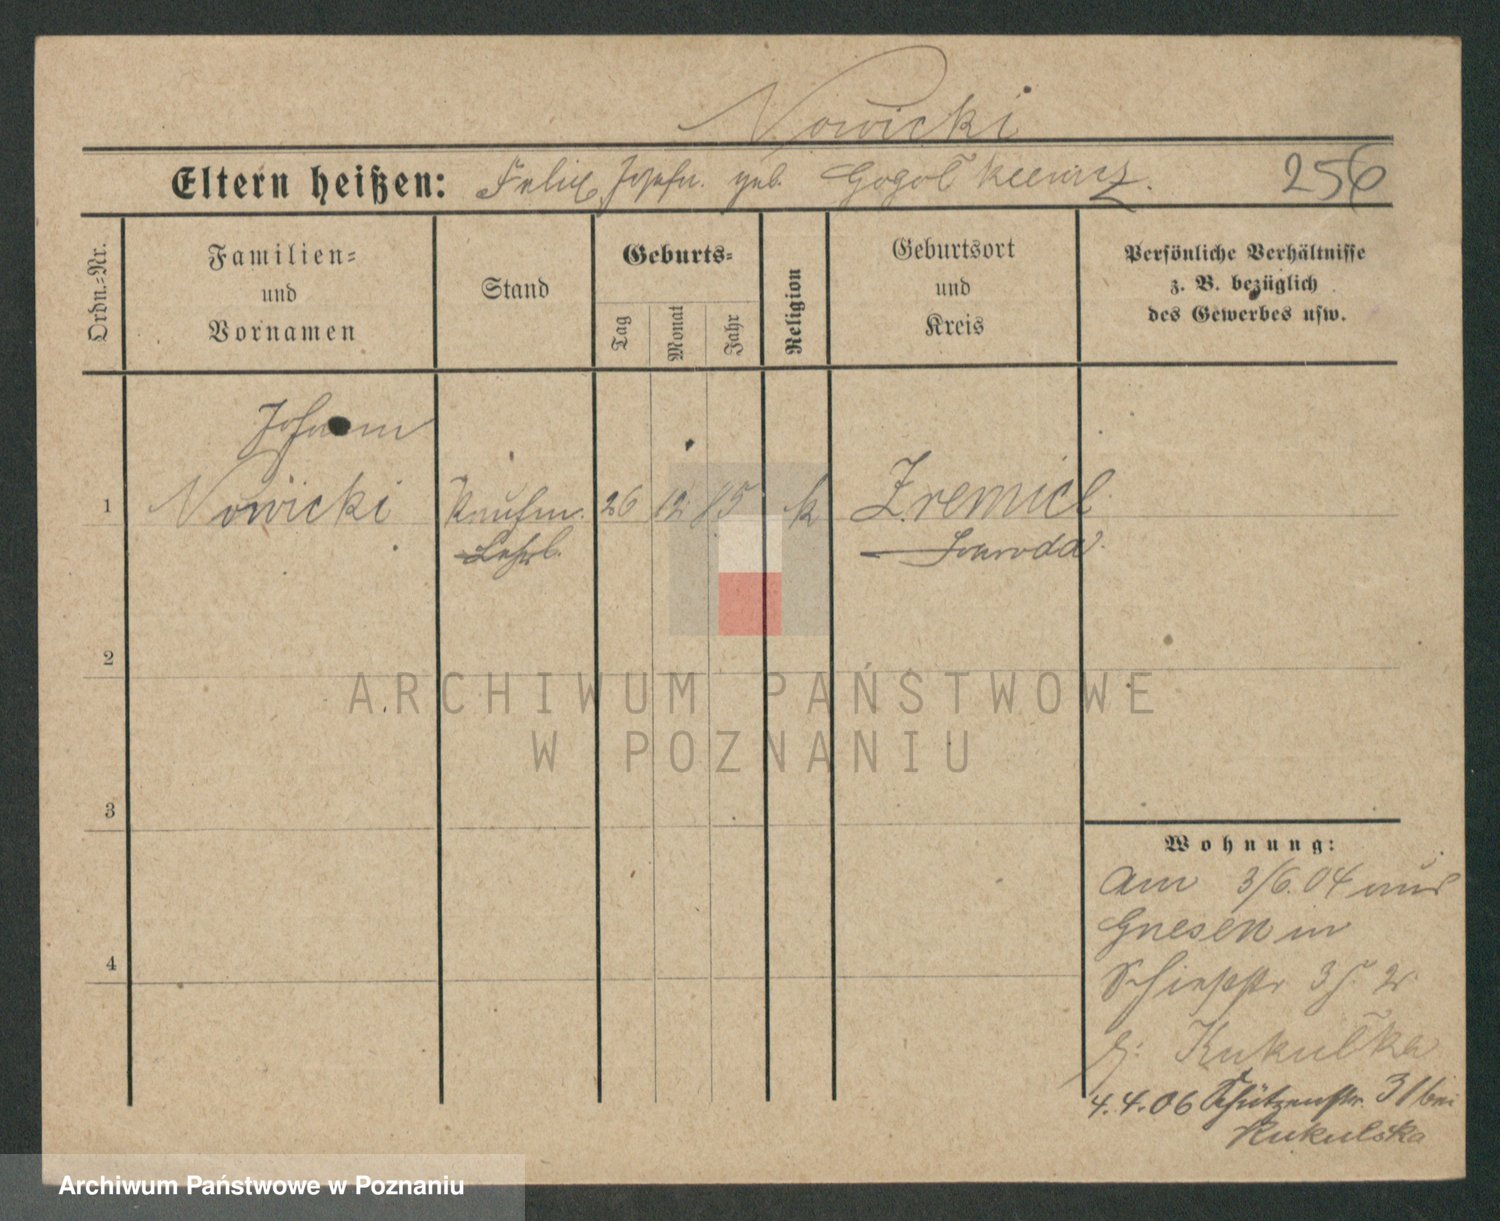 Nowicki
Eltern heißen: Felix, Josefa. geb. 256
Ordn.-Nr.
Familien-
und
Vornamen
Stand
Geburts-
Tag
Monat
Jahr
Religion
Geburtsort
und
Kreis
Persönliche Verhältnisse
z. B. bezüglich
des Gewerbes usw.
Johann
1 Nowicki Kaufm. 26 12 k
Lehrl.
2
3
4
Wohnung:
Am 3/6.04 aus
Gnesen in
4.4.06 Schützenstr. 31 bei
Kukulska
ARCHIWUM PAŃSTWOWE
W POZNANIU
Archiwum Państwowe w Poznaniu